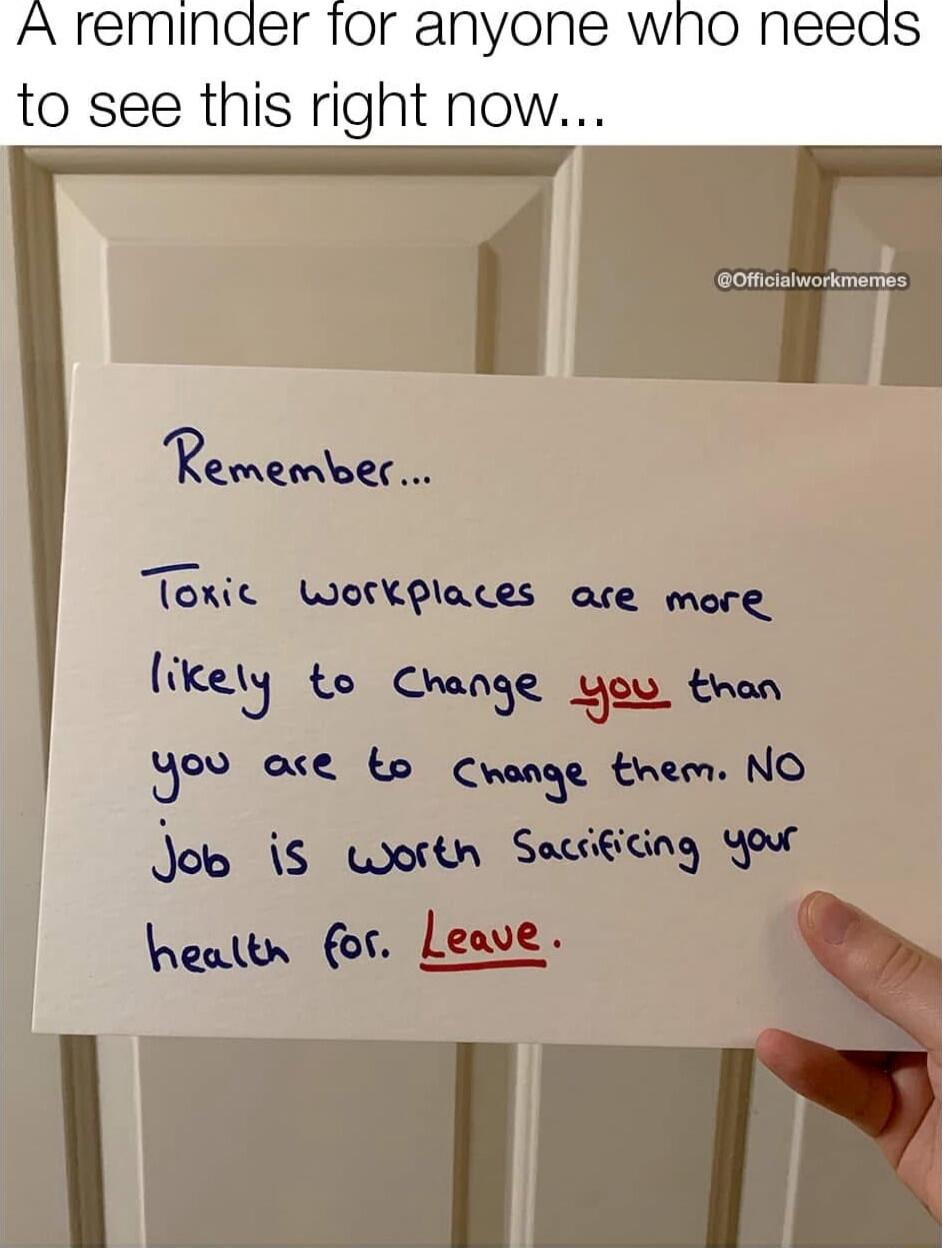 A reminder for anyone who needs
to see this right now...
@Officialworkmemes
Remember...
Toxic workplaces are more
likely to change you than
you are to change them. NO
job is worth sacrificing your
health for. Leave.